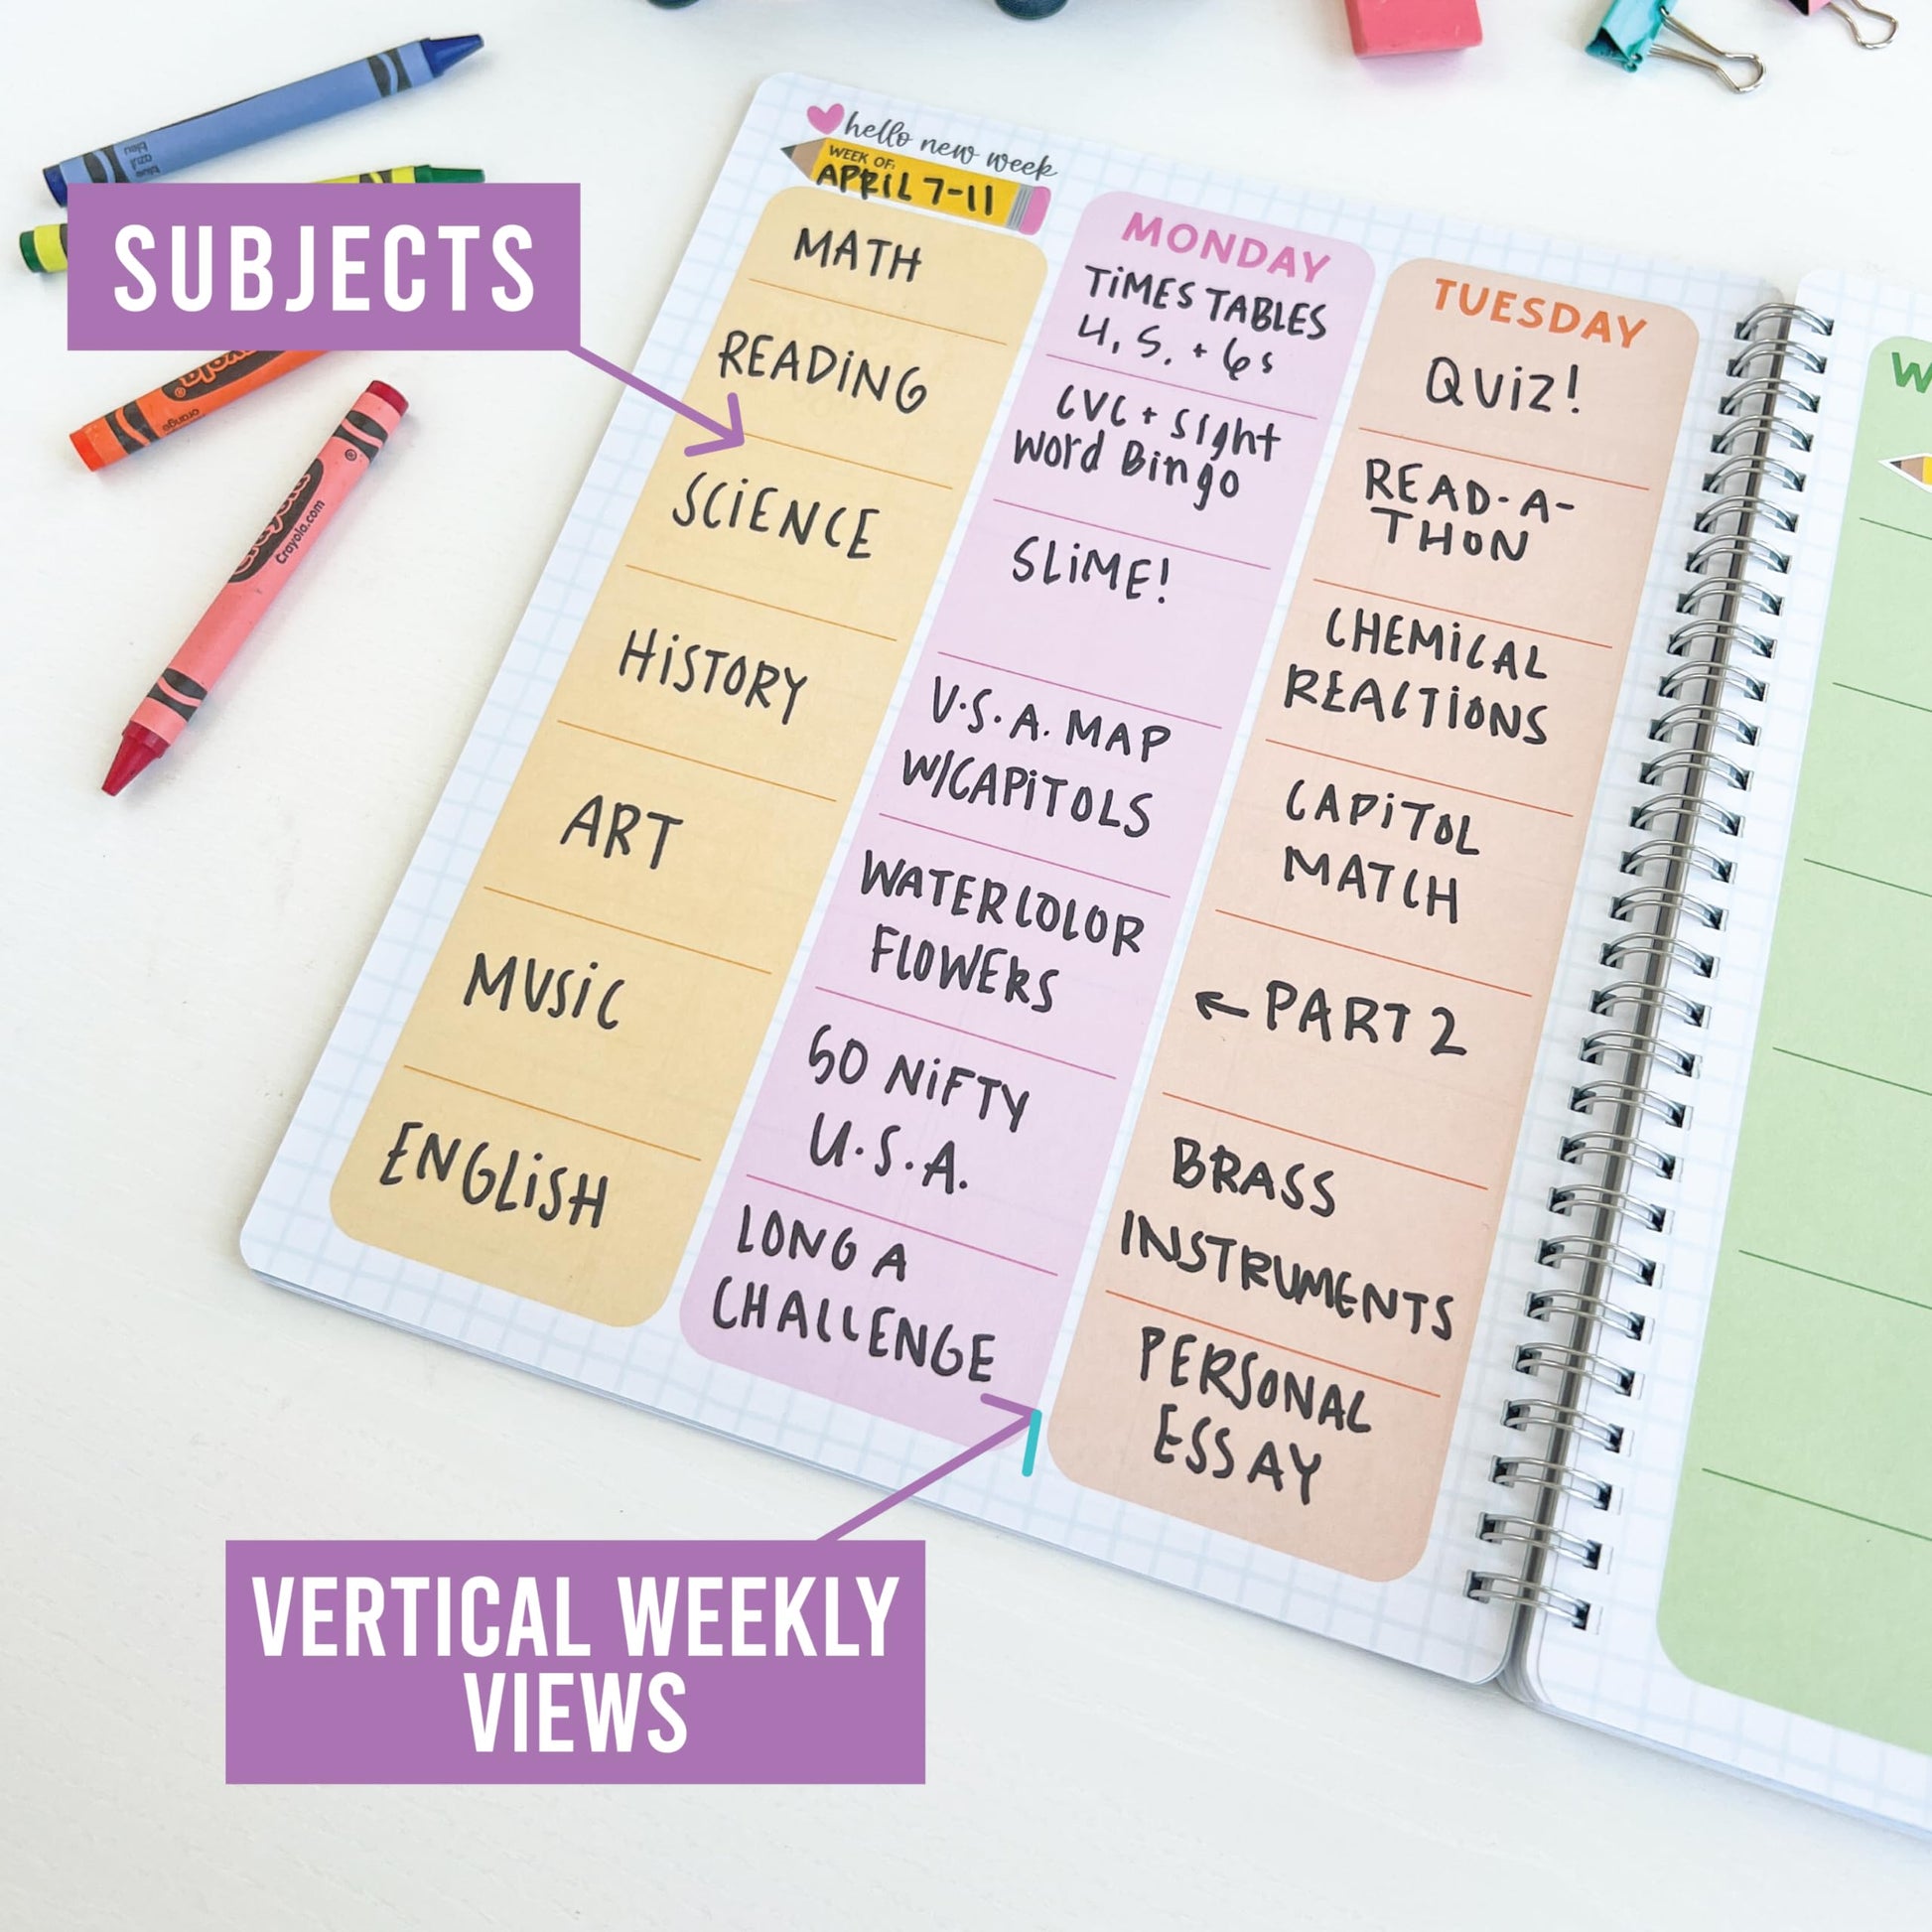 hello new week
WEEK OF:
APRiL 7-11
SUBJECTS
MATH
READiNG
SCiENCE
HiSTORY
ART
MUSiC
ENGLiSH
MONDAY
TiMES TABLES
4, 5, + 6s
CVC + sight
word Bingo
SLiME!
U.S.A. MAP
W/CAPiTOLS
WATERCOLOR
FLOWERS
50 NiFTY
U.S.A.
LONG A
CHALLENGE
TUESDAY
QUiZ!
READ-A-
THON
CHEMiCAL
REACTiONS
CAPiTOL
MATCH
← PART 2
BRASS
INSTRUMENTS
PERSONAL
ESSAY
W
VERTICAL WEEKLY
VIEWS
blue
azul
bleu
orange
Crayola
Crayola.com